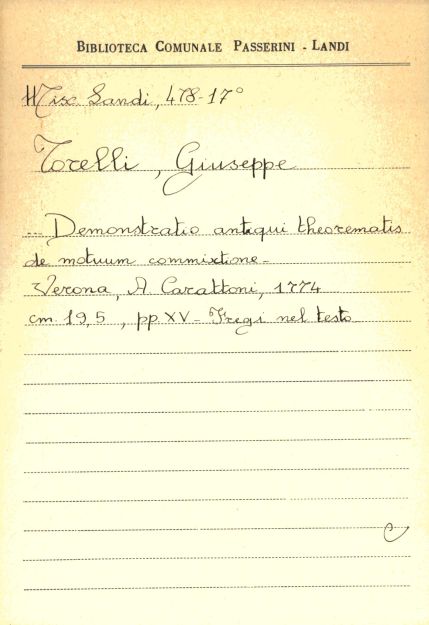 BIBLIOTECA COMUNALE PASSERINI - LANDI
Misc Landi, 478-17°
Torelli, Giuseppe
... Demonstratio antiqui theorematis
de motuum commixtione -
Verona, A. Carattoni, 1774
cm 19,5, pp. XV - Fregi nel testo
C